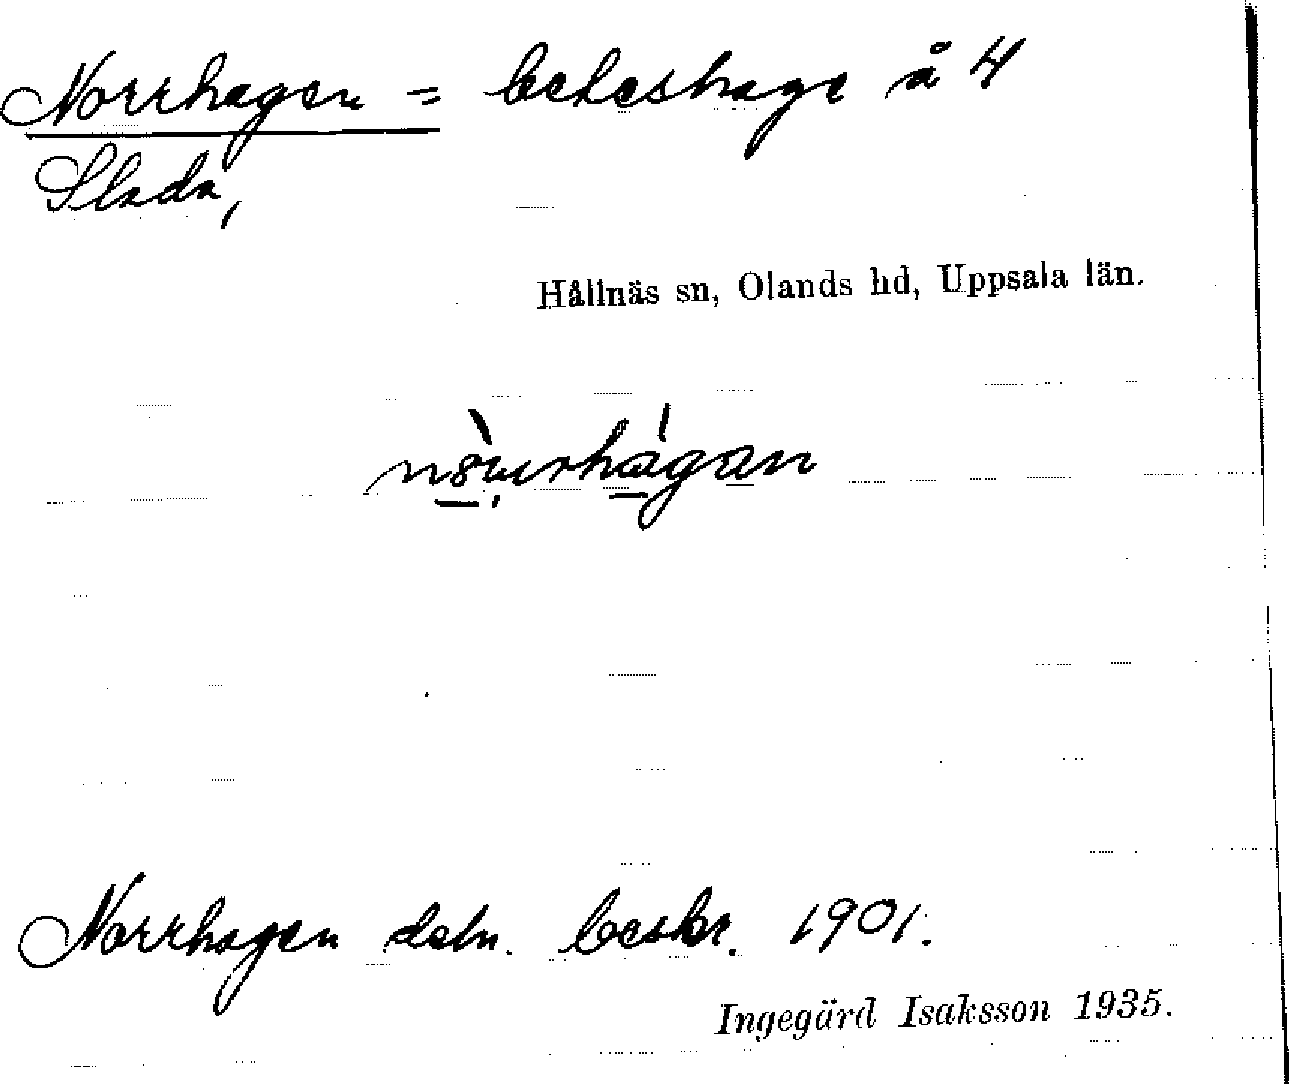 Norrhagen = beteshage å 4
Slada,
Hållnäs sn, Olands hd, Uppsala län.
Norrhagen dobn. beskr. 1901.
Ingegärd Isaksson 1935.